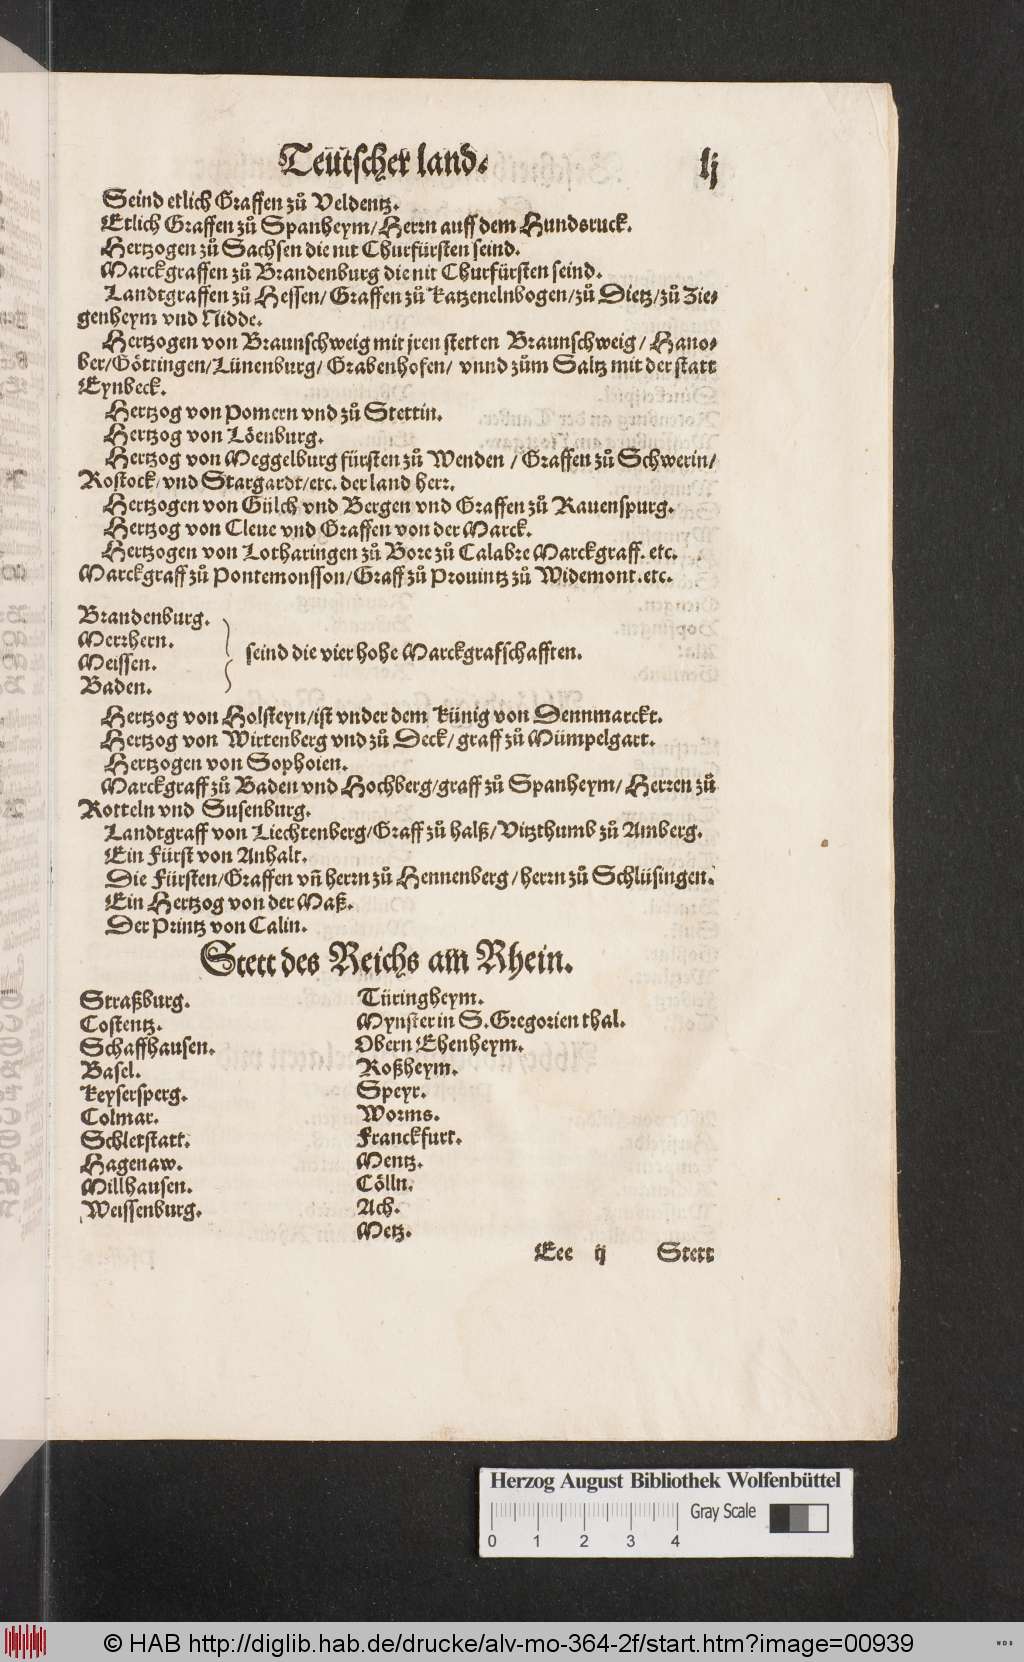 Teütscher land. lj
Seind etlich Graffen zů Veldentz.
Etlich Graffen zů Spanheym/Herrn auff dem Hundsruck.
Hertzogen zů Sachsen die nit Churfürsten seind.
Marckgraffen zů Brandenburg die nit Churfürsten seind.
Landtgraffen zů Hessen/Graffen zů Katzenelnbogen/zů Dietz/zů Zie-
genheym vnd Nidde.
Hertzogen von Braunschweig mit jren stetten Braunschweig/Hano-
ber/Göttingen/Lünenburg/Grabenhofen/ vnnd zům Saltz mit der statt
Eynbeck.
Hertzog von Pomern vnd zů Stettin.
Hertzog von Löenburg.
Hertzog von Meggelburg fürsten zů Wenden/Graffen zů Schwerin/
Rostock/vnd Stargardt/etc. der land herr.
Hertzogen von Gülch vnd Bergen vnd Graffen zů Rauenspurg.
Hertzog von Cleue vnd Graffen von der Marck.
Hertzogen von Lotharingen zů Bore zů Calabre Marckgraff. etc.
Marckgraff zů Pontemonsson/Graff zů Prouintz zů Widemont.etc.
Brandenburg.
Merrhern.
Meissen.
Baden.
seind die vier hohe Marckgrafschafften.
Hertzog von Holsteyn/ist vnder dem Künig von Dennmarckt.
Hertzog von Wirtenberg vnd zů Deck/graff zů Mümpelgart.
Hertzogen von Sophoien.
Marckgraff zů Baden vnd Hochberg/graff zů Spanheym/Herren zů
Rotteln vnd Susenburg.
Landtgraff von Liechtenberg/Graff zů halß/Vitzthumb zů Amberg.
Ein Fürst von Anhalt.
Die Fürsten/Graffen vñ herrn zů Hennenberg/herrn zů Schlüsingen.
Ein Hertzog von der Maß.
Der Printz von Calin.
Stett des Reichs am Rhein.
Straßburg.
Costentz.
Schaffhausen.
Basel.
Keysersperg.
Colmar.
Schletstatt.
Hagenaw.
Millhausen.
Weissenburg.
Türingheym.
Mynster in S.Gregorien thal.
Obern Ehenheym.
Roßheym.
Speyr.
Worms.
Franckfurt.
Mentz.
Cölln.
Ach.
Metz.
Eee ij Stett
Herzog August Bibliothek Wolfenbüttel
Gray Scale
0 1 2 3 4
© HAB http://diglib.hab.de/drucke/alv-mo-364-2f/start.htm?image=00939